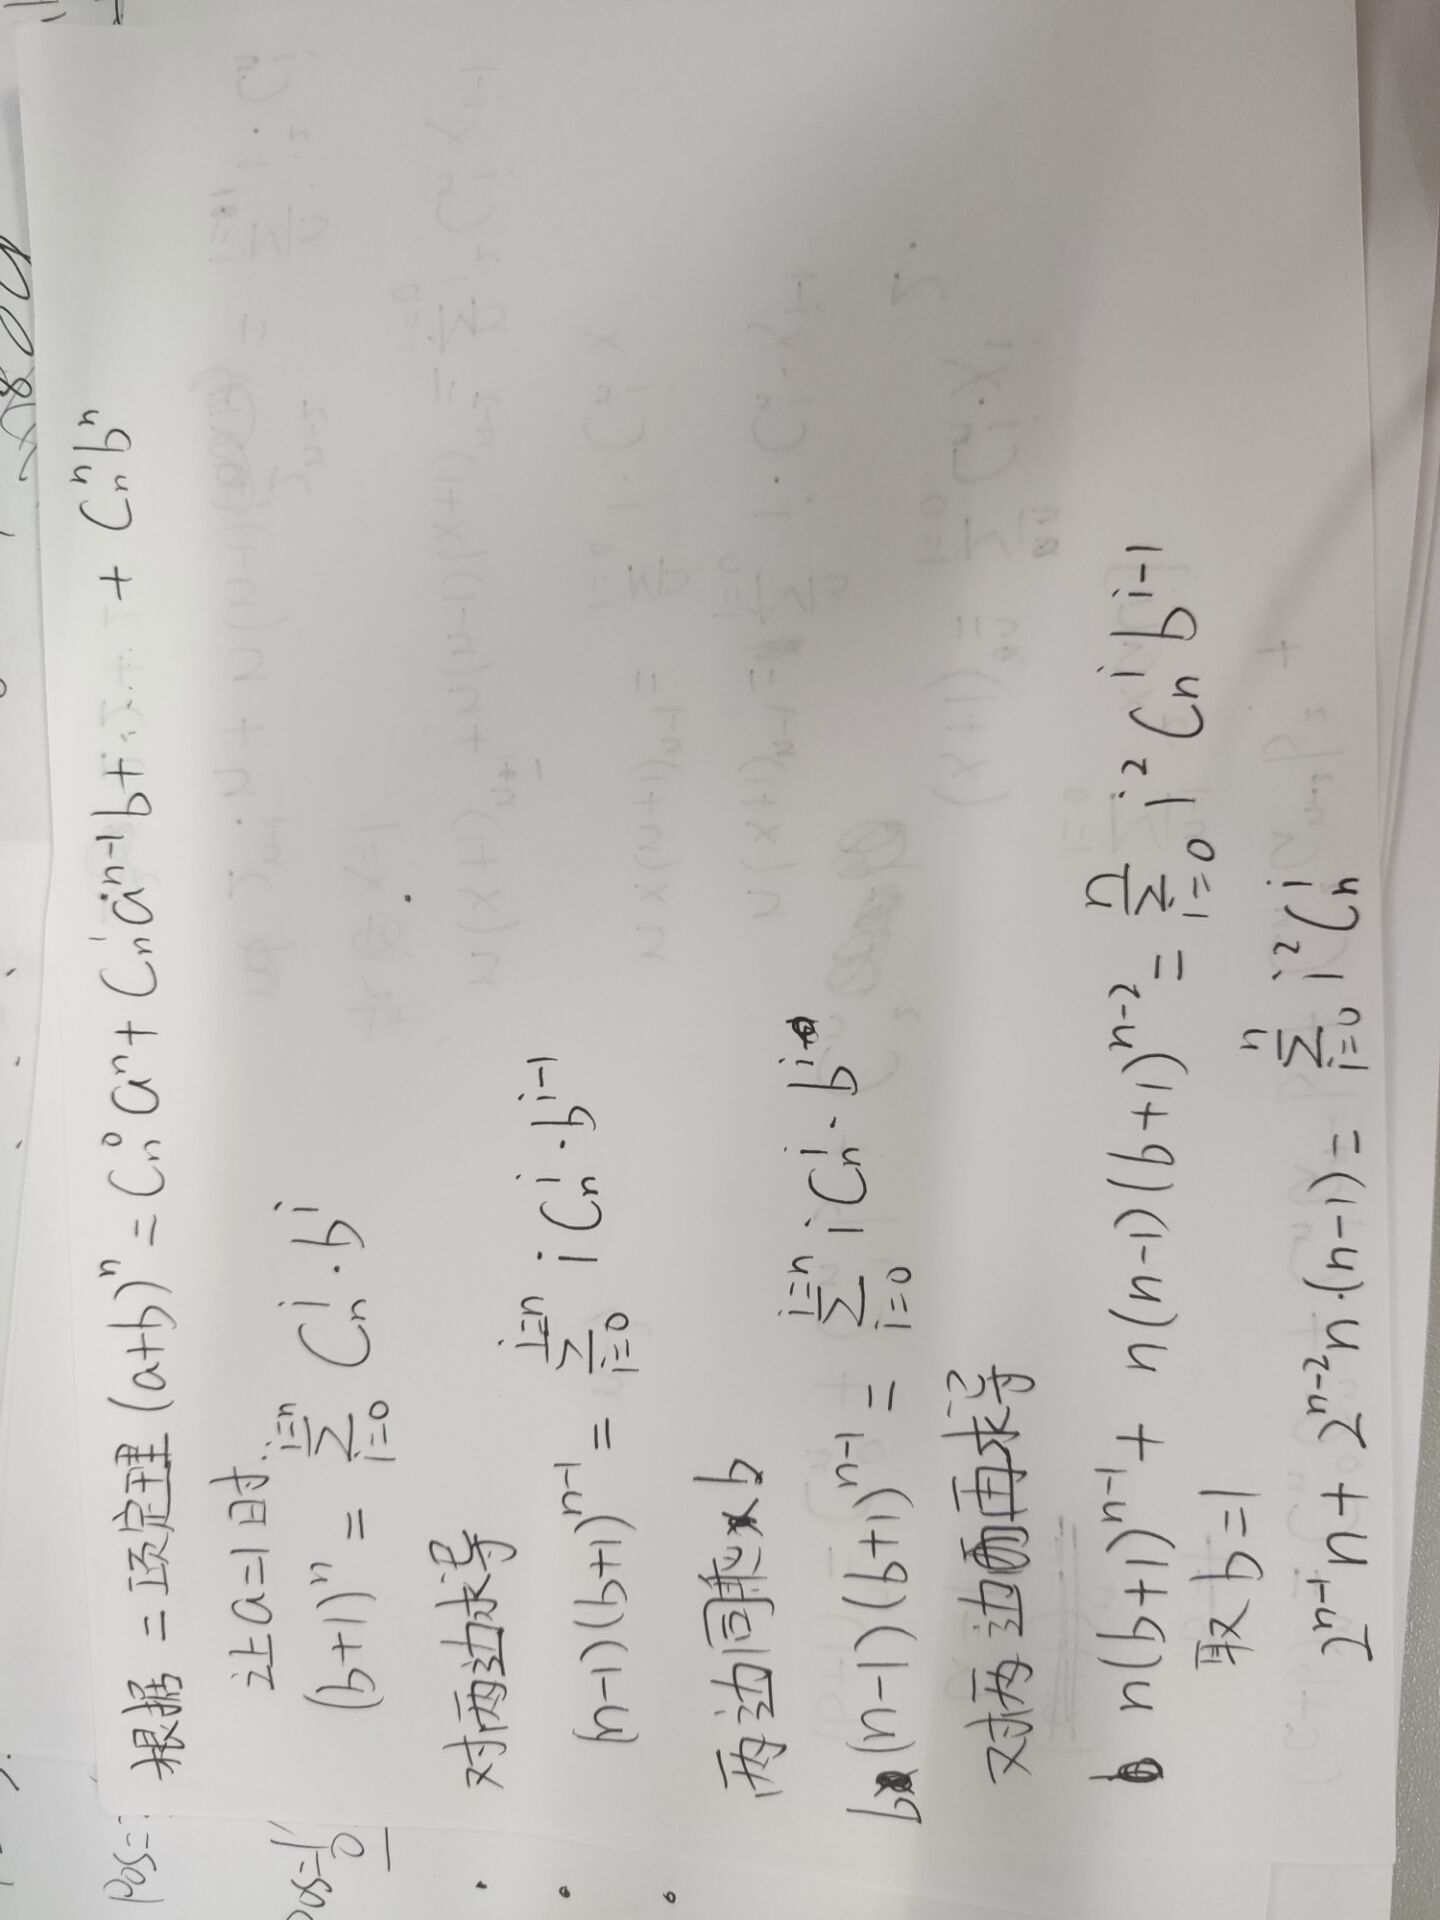 根据二项定理 (a+b)ⁿ = Cₙ⁰aⁿ + Cₙ¹aⁿ⁻¹b + ... + Cₙⁿbⁿ
让a=1时.
(b+1)ⁿ = ∑_{i=0}^{i=n} Cₙⁱ·bⁱ
对两边求导
(n-1)(b+1)ⁿ⁻¹ = ∑_{i=0}^{i=n} i Cₙⁱ·bⁱ⁻¹
两边同乘 b
b(n-1)(b+1)ⁿ⁻¹ = ∑_{i=0}^{i=n} i Cₙⁱ·bⁱ
对两边再求导
n(b+1)ⁿ⁻¹ + n(n-1)(b+1)ⁿ⁻² = ∑_{i=0}^{n} i² Cₙⁱ bⁱ⁻¹
取 b=1
2ⁿ⁻¹n + 2ⁿ⁻²n·(n-1) = ∑_{i=0}^{n} i² Cₙⁱ
Pos=